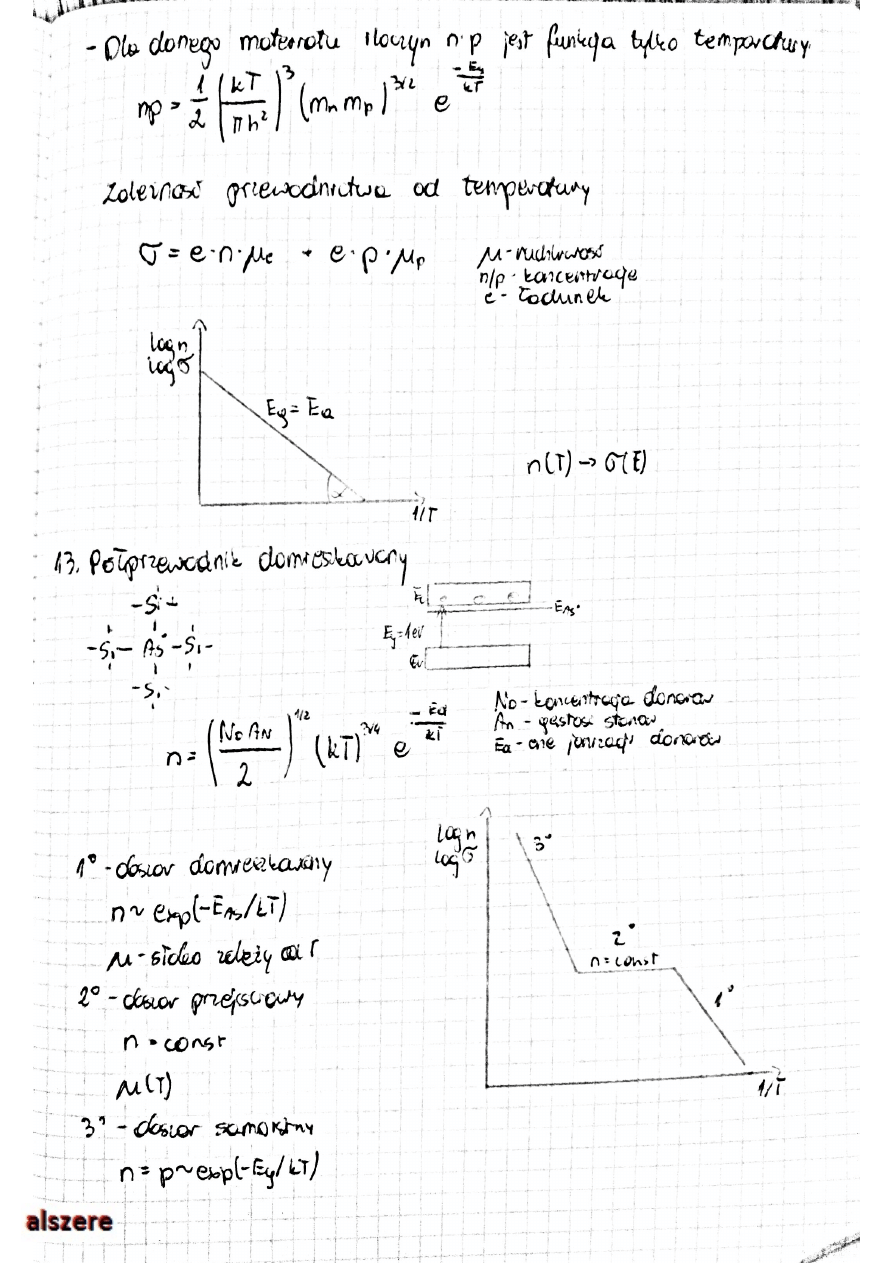 - Dla danego materiału iloczyn n·p jest funkcją tylko temperatury
np = 1/2 (kT/πh²)³ (mn mp)^3/2 e^(-Eg/kT)
Zależność przewodnictwa od temperatury
σ = e·n·μe + e·p·μp
μ - ruchliwość
n/p - koncentracje
e - ładunek
log n
log σ
Eg = Ea
α
1/T
n(T) → σ(E)
13. Półprzewodnik domieszkowany
-Si-
-Si- As -Si-
-Si-
Ec
EAs
Eg=1eV
Ev
n = (ND AN/2)^1/2 (kT)^3/4 e^(-Ed/kT)
ND - koncentracja donorów
AN - gęstość stanów
Ed - ene jonizacji donorów
1° - obszar domieszkowany
n ~ exp(-EAs/kT)
μ - słabo zależy od T
2° - obszar przejściowy
n = const
μ(T)
3° - obszar samoistny
n = p ~ exp(-Eg/kT)
log n
log σ
3°
2°
n = const
1°
1/T
alszere